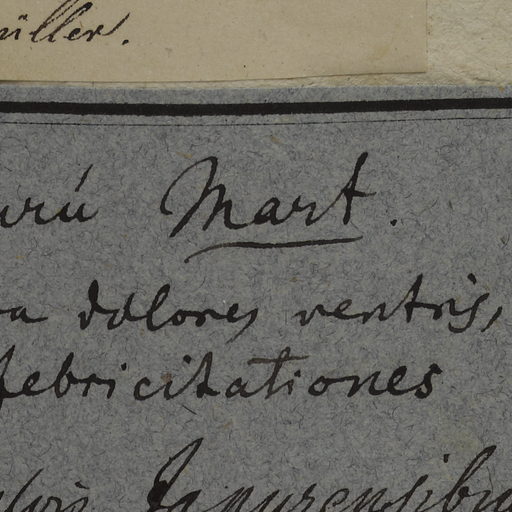 üller.
urú Mart.
ra dolores ventris,
febricitationes
Japurensibus